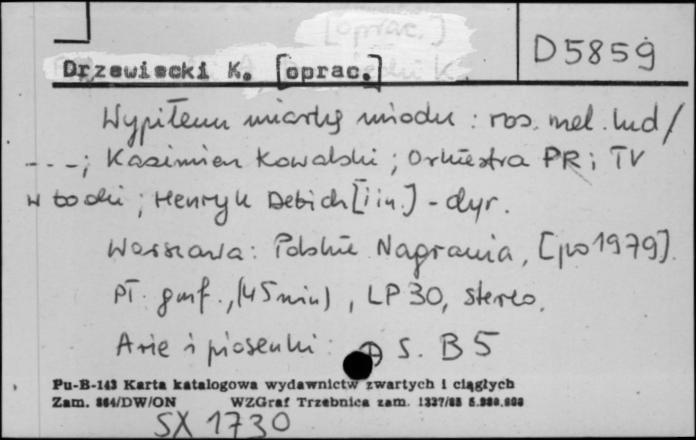 [oprac.]
D5859
Drzewiecki K. [oprac.]
Wypiłem miarkę miodu : ros. mel. lud /
---; Kazimierz Kowalski ; Orkiestra PR i TV
w Łodzi ; Henryk Debich [i in.] - dyr.
Warszawa : Polskie Nagrania, [po 1979].
Pł. gmf., (45 min), LP 30, stereo.
Arie i piosenki : S. B 5
Pu-B-143 Karta katalogowa wydawnictw zwartych i ciągłych
Zam. 864/DW/ON WZGraf Trzebnica zam.
SX 1730